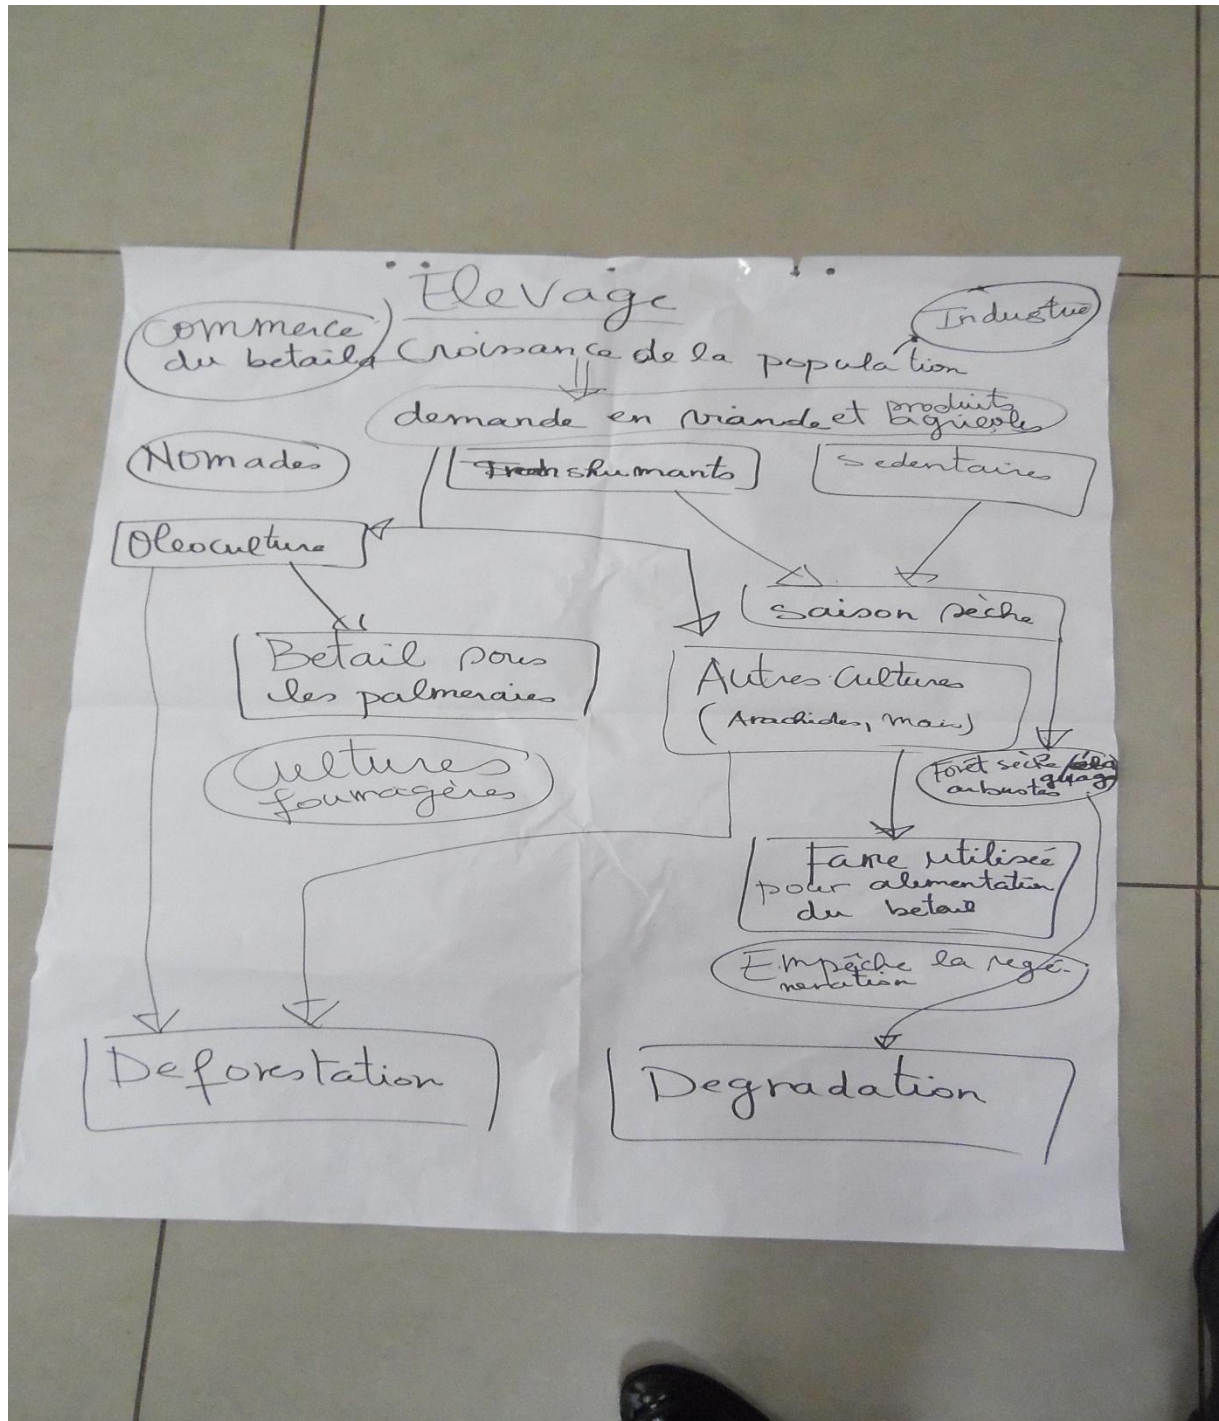 Elevage
Commerce
du betail
Industrie
Croissance de la population
demande en viande et produits
agricoles
Nomades
Transhumants
Sedentaires
Oleoculture
Saison sèche
Betail sous
les palmeraies
Autres Cultures
(Arachides, mais)
Cultures
fourragères
Forêt sèche/élà
guage
arbustes
Fane utiliseé
pour alimentation
du betail
Empêche la regé-
neration
Deforestation
Degradation